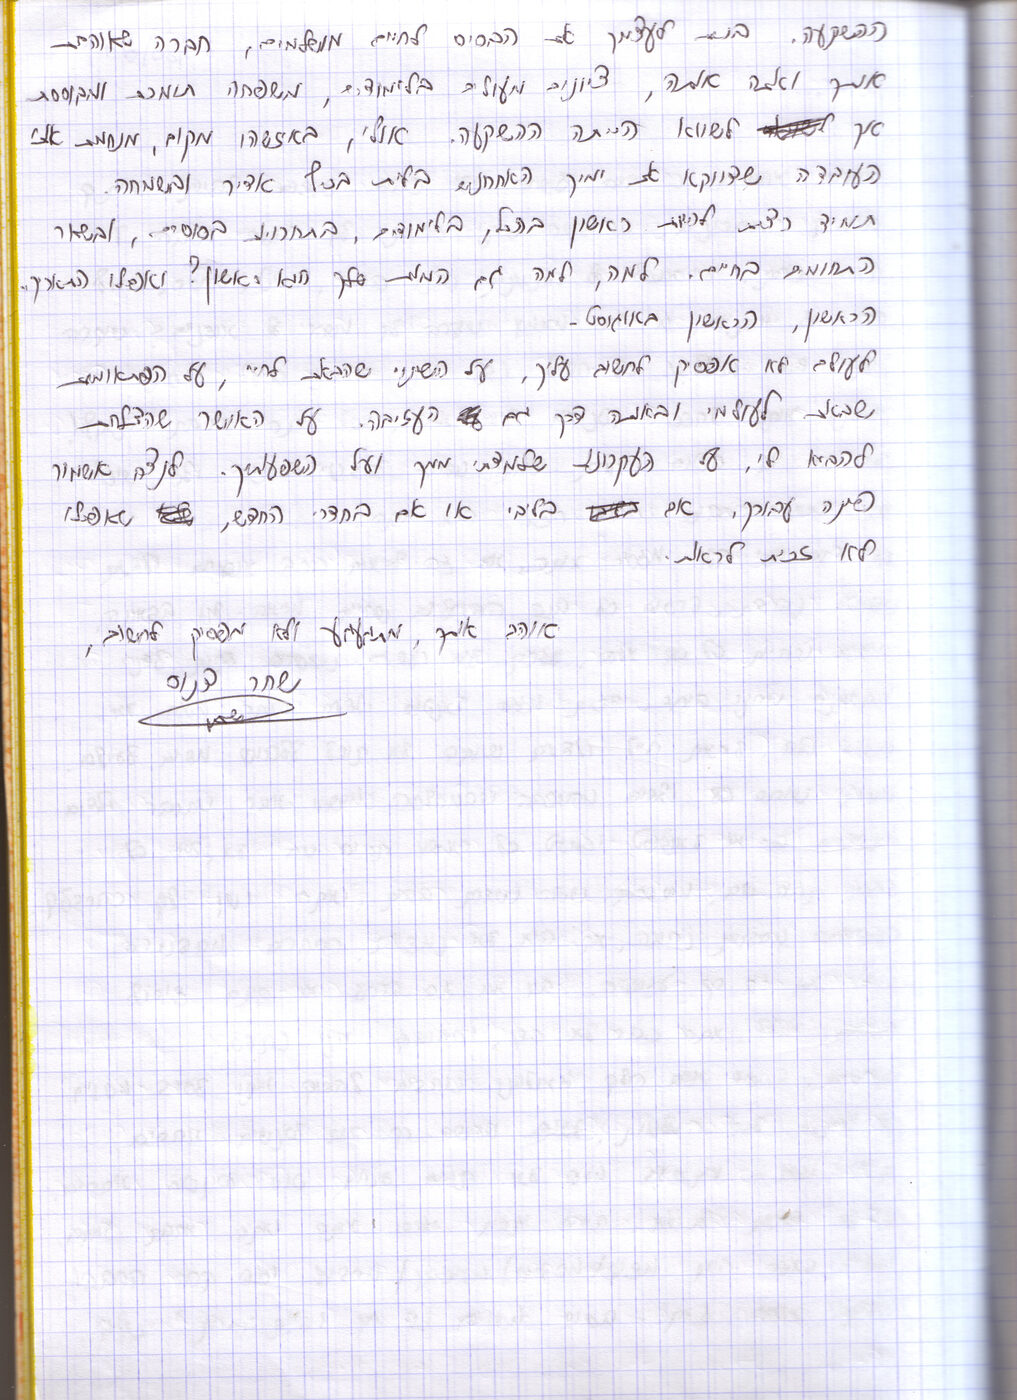 ההשקעה. בנית לעצמך את הבסיס לחיים מושלמים, חברה שאוהבת
אותך ואתה אותה, ציונים מעולים בלימודים, משפחה תומכת ומבוססת
אך לשווא הייתה ההשקעה. אולי, באיזשהו מקום, מנחמת אותי
העובדה שדווקא את ימיך האחרונים בילית בכיף אדיר ובשמחה.
תמיד רצית להיות ראשון בהכל, בלימודים, בתחרויות בסוסים, ובשאר
התחומים בחיים. למה, למה גם המוות שלך הוא ראשון? ואפילו התאריך..
הראשון, הראשון באוגוסט -
לעולם לא אפסיק לחשוב עליך, על השינוי שהבאת לחיי, על הפתאומיות
שבאת לעולמי ובאותה דרך גם העזיבה. על האושר שהצלחת
להביא לי, על העקרונות שלמדתי ממך ועל השפעותיך. לנצח אשמור
פינה עבורך, אם בליבי או אם בחדרי החדש, שאפילו
לא זכית לראות.
אוהב אותך, מתגעגע ולא מפסיק לחשוב,
נשחר